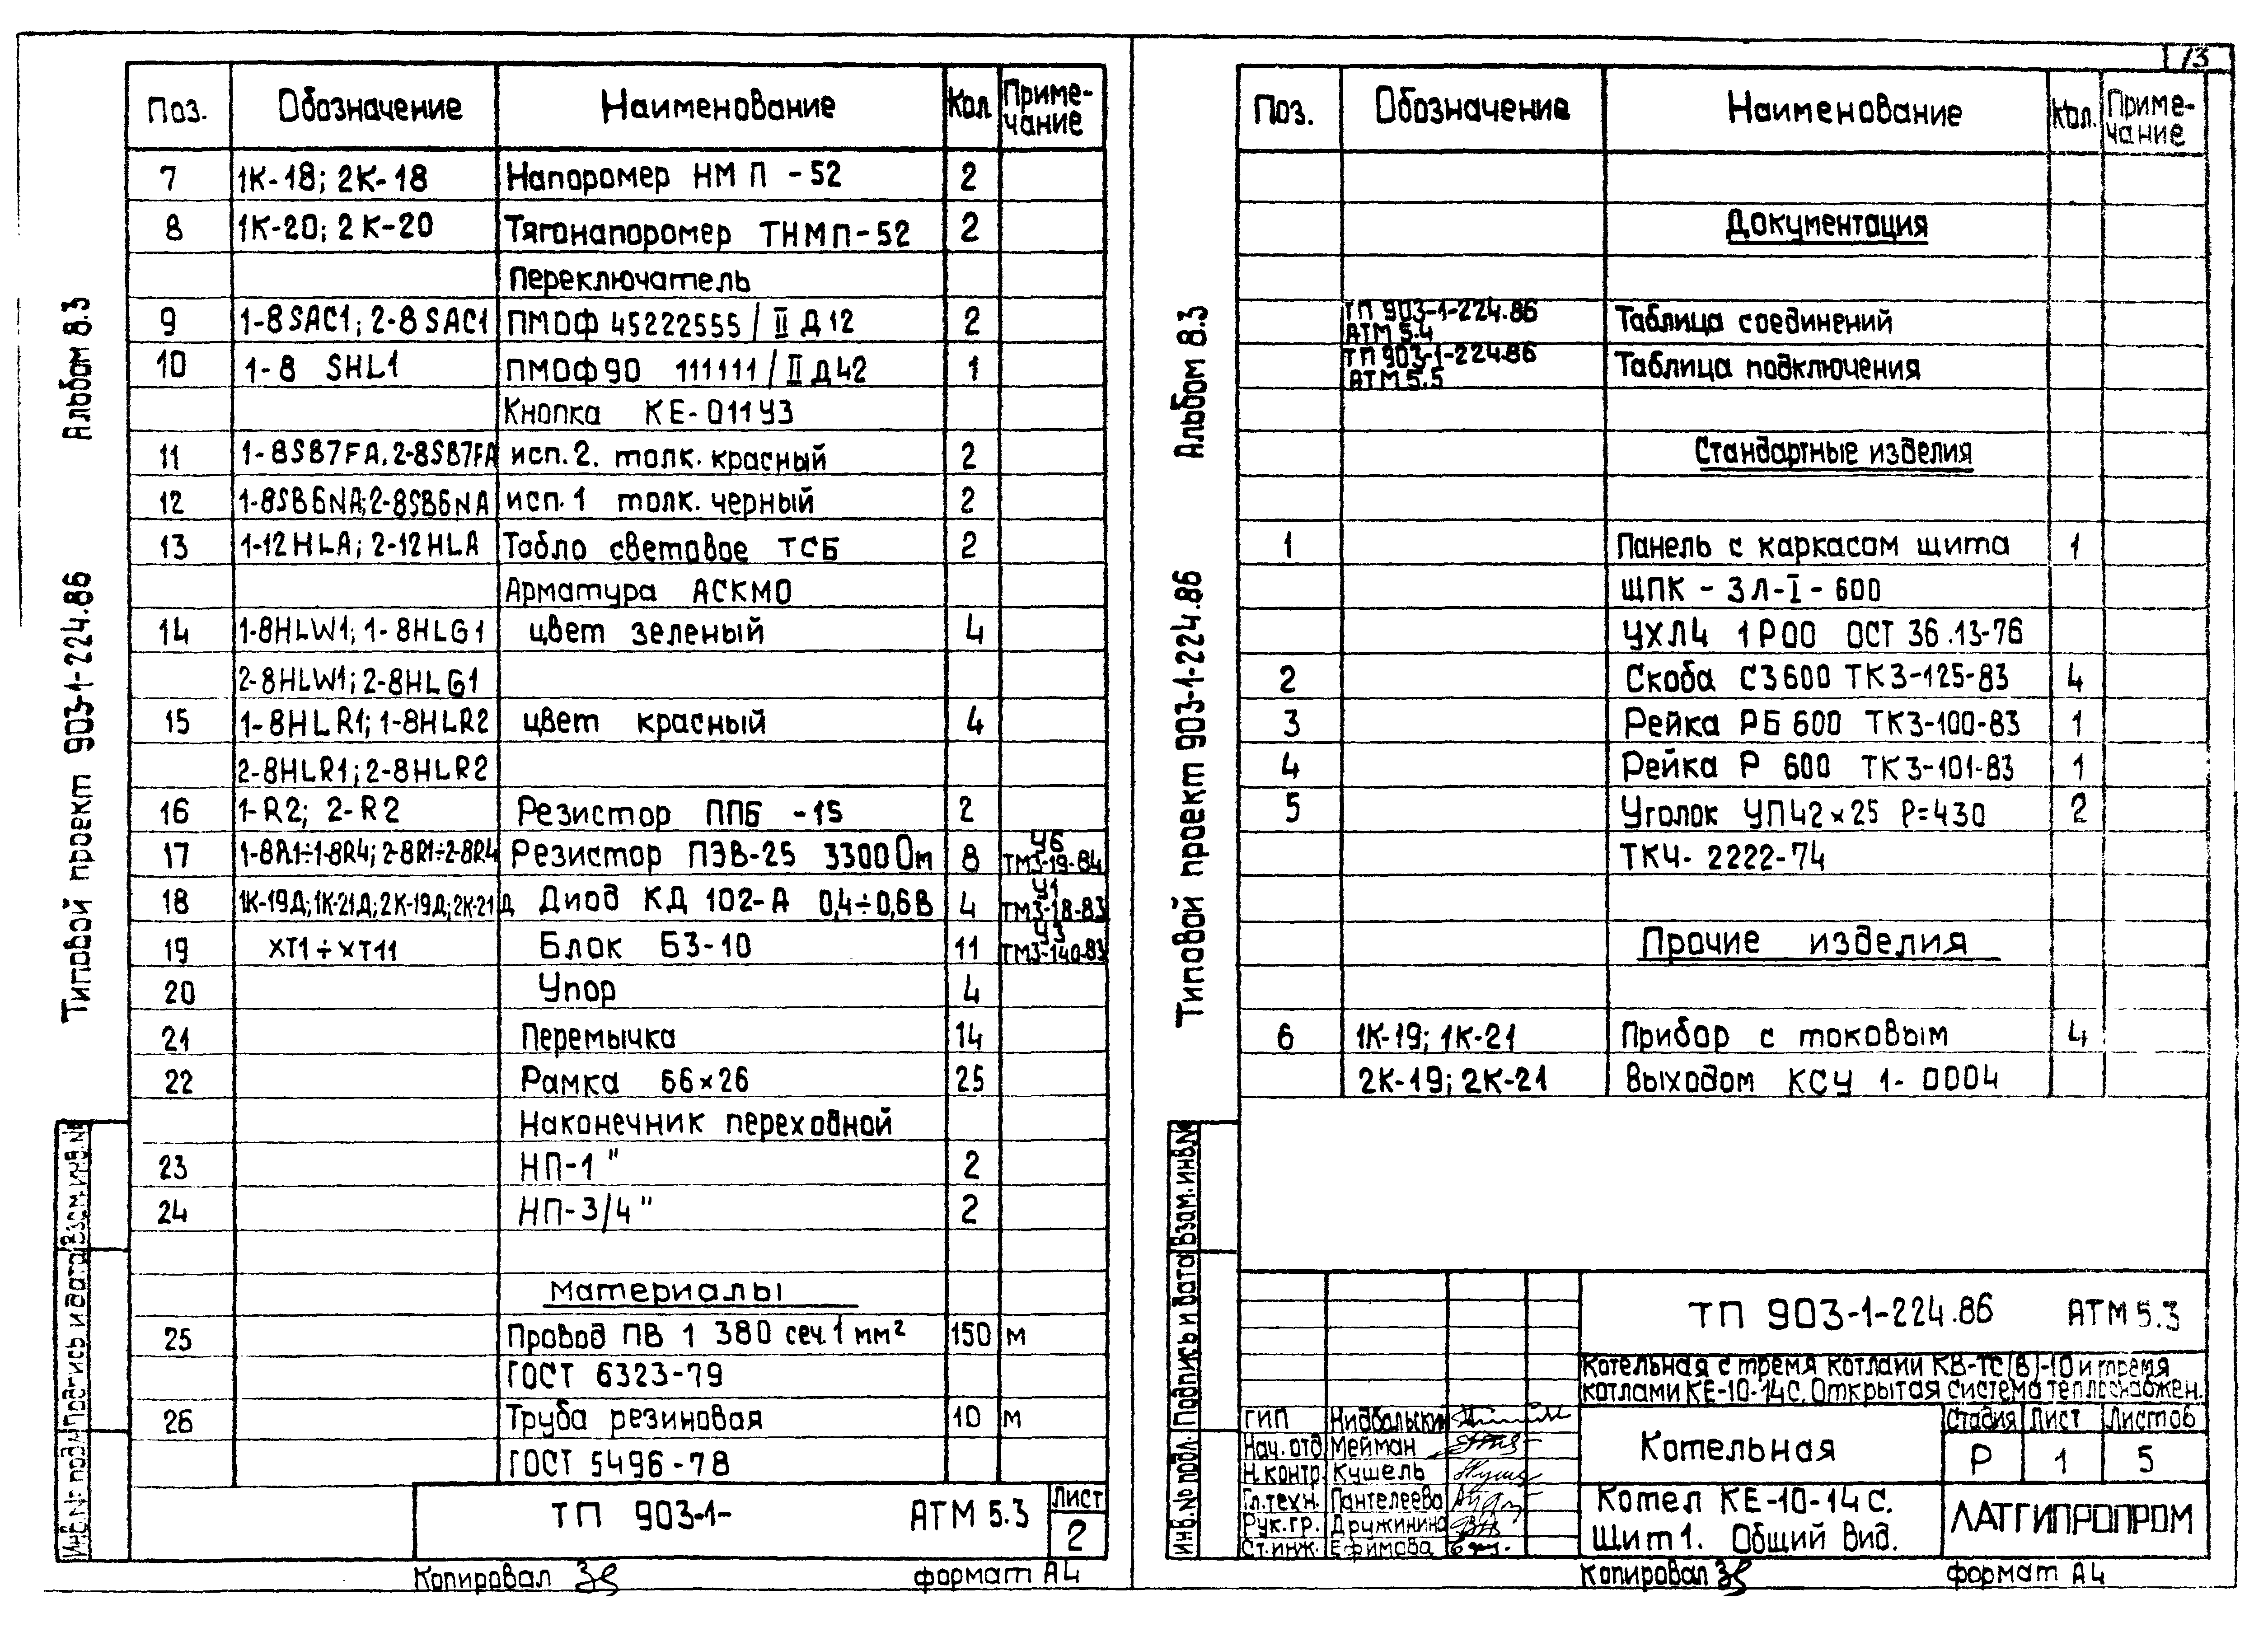 13
Альбом 8.3
Типовой проект 903-1-224.86
Поз. Обозначение Наименование Кол Приме-
чание
7 1К-18; 2К-18 Напоромер НМП-52 2
8 1К-20; 2К-20 Тягонапоромер ТНМП-52 2
Переключатель
9 1-8SAC1; 2-8SAC1 ПМОФ 45222555/II Д12 2
10 1-8 SHL1 ПМОФ90 111111/II Д42 1
Кнопка КЕ-011У3
11 1-8SB7FA. 2-8SB7FA исп.2. толк. красный 2
12 1-8SB6NA; 2-8SB6NA исп.1 толк. черный 2
13 1-12HLA; 2-12HLA Табло световое ТСБ 2
Арматура АСКМО
14 1-8HLW1; 1-8HLG1 цвет зеленый 4
2-8HLW1; 2-8HLG1
15 1-8HLR1; 1-8HLR2 цвет красный 4
2-8HLR1; 2-8HLR2
16 1-R2; 2-R2 Резистор ППБ -15 2
17 1-8R1÷1-8R4; 2-8R1÷2-8R4 Резистор ПЭВ-25 3300 Ом 8 У6
ТМ3-19-84
18 1К-19Д; 1К-21Д; 2К-19Д; 2К-21Д Диод КД 102-А 0,4÷0,6В 4 У1
ТМ3-18-83
19 ХТ1÷ХТ11 Блок БЗ-10 11 У3
ТМ3-140-83
20 Упор 4
21 Перемычка 14
22 Рамка 66×26 25
Наконечник переходной
23 НП-1" 2
24 НП-3/4" 2
Материалы
25 Провод ПВ 1 380 сеч.1 мм² 150 м
ГОСТ 6323-79
26 Труба резиновая 10 м
ГОСТ 5496-78
Инв.№ подл. Подпись и дата Взам.инв.№
ТП 903-1- АТМ 5.3 Лист
2
Копировал формат А4
Альбом 8.3
Типовой проект 903-1-224.86
Поз. Обозначение Наименование Кол. Приме-
чание
Документация
ТП 903-1-224.86
АТМ 5.4 Таблица соединений
ТП 903-1-224.86
АТМ 5.5 Таблица подключения
Стандартные изделия
1 Панель с каркасом щита 1
ЩПК - 3Л-I-600
УХЛ4 1Р00 ОСТ 36.13-76
2 Скоба С3600 ТК3-125-83 4
3 Рейка РБ 600 ТК3-100-83 1
4 Рейка Р 600 ТК3-101-83 1
5 Уголок УП42×25 Р=430 2
ТКЧ-2222-74
Прочие изделия
6 1К-19; 1К-21 Прибор с токовым 4
2К-19; 2К-21 Выходом КСУ 1-0004
Инв.№ подл. Подпись и дата Взам.инв.№
ТП 903-1-224.86 АТМ 5.3
Котельная с тремя котлами КВ-ТС(В)-10 и тремя
котлами КЕ-10-14С. Открытая система теплоснабжен.
ГИП Нидбальский
Нач.отд Мейман
Н.контр. Кушель
Гл.техн. Пантелеева
Рук.гр. Дружинина
Ст.инж. Ефимова
Котельная
Стадия Лист Листов
Р 1 5
Котел КЕ-10-14С.
Щит 1. Общий вид.
ЛАТГИПРОПРОМ
Копировал формат А4